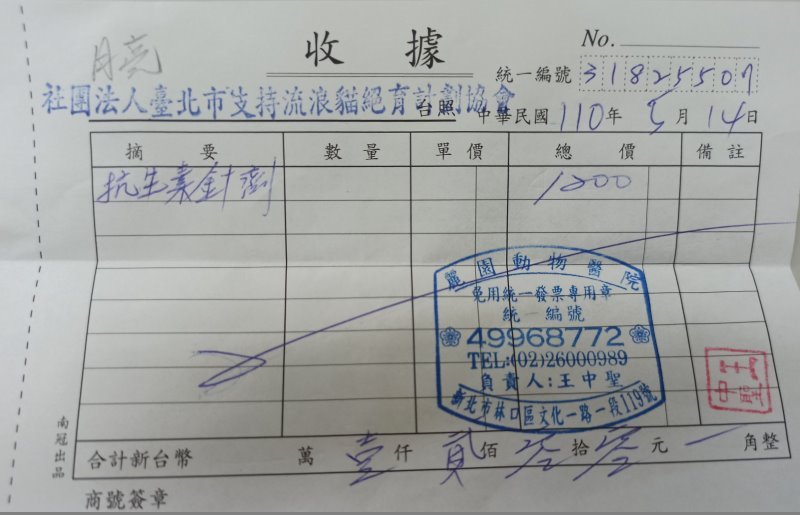 月亮
收據
No.
統一編號 31825507
社團法人臺北市支持流浪貓絕育計劃協會 台照
中華民國 110 年 5 月 14 日
摘要 數量 單價 總價 備註
抗生素針劑 1200
麗園動物醫院
免用統一發票專用章
統一編號
49968772
TEL:(02)26000989
負責人:王中聖
新北市林口區文化一路一段119號
南冠出品
合計新台幣 萬 壹 仟 貳 佰 零 拾 零 元 角整
商號簽章